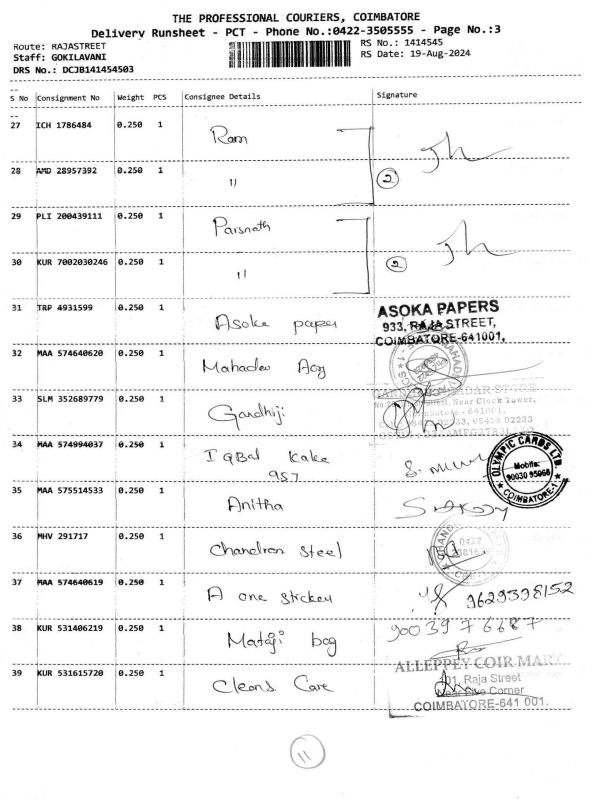 THE PROFESSIONAL COURIERS, COIMBATORE
Delivery Runsheet - PCT - Phone No.:0422-3505555 - Page No.:3
Route: RAJASTREET
RS No.: 1414545
Staff: GOKILAVANI
RS Date: 19-Aug-2024
DRS No.: DCJB141454503
S No Consignment No Weight PCS Consignee Details Signature
27 ICH 1786484 0.250 1 Ram
28 AMD 28957392 0.250 1 " 2
29 PLI 200439111 0.250 1 Parsnath
30 KUR 7002030246 0.250 1 " 2
31 TRP 4931599 0.250 1 Asoka paper
ASOKA PAPERS
933, RAJA STREET,
COIMBATORE-641001,
32 MAA 574640620 0.250 1 Mahadev Acy
33 SLM 352689779 0.250 1 Gandhiji
Near Clock Tower,
34 MAA 574994037 0.250 1 IQBal Kake
957
OLYMPIC CARDS LTD.
Mobile:
90030 95068
COIMBATORE-1
35 MAA 575514533 0.250 1 Anitha
36 MHV 291717 0.250 1 Chandran Steel
0422
37 MAA 574640619 0.250 1 A one sticker
9629398152
38 KUR 531406219 0.250 1 Mataji bag
9003976687
39 KUR 531615720 0.250 1 Cleans Care
ALLEPPEY COIR MART
101, Raja Street
Near Five Corner
COIMBATORE-641 001.
11